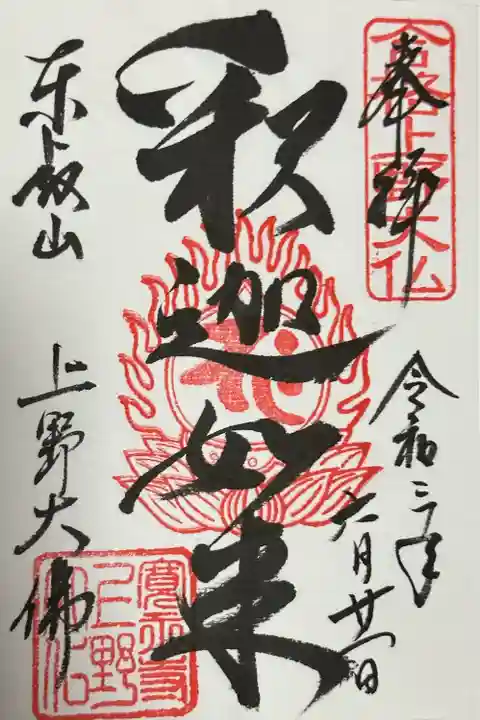 奉拝
令和三年
六月廿一日
釈迦如来
東叡山
上野大佛